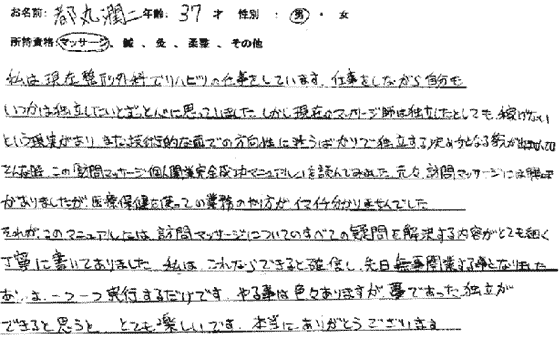 お名前: 都丸潤二 年齢: 37 才 性別 : 男 ・ 女
所持資格: マッサージ 、 鍼 、 灸 、 柔整 、 その他
私は現在整形外科でリハビリの仕事をしています。仕事をしながら自分も
いつかは独立したいとばくぜんに思っていました。しかし現在のマッサージ師は独立したとしても稼げない
という現実があり、また技術的な面での方向性に迷うばかりで独立する決め分となる
そんな時、この「訪問マッサージ個人開業完全成功マニュアル」を読んでみました。元々、訪問マッサージには興味
がありましたが医療保険を使っての業務のやり方がイマイチ分かりませんでした
それがこのマニュアルには訪問マッサージについてのすべての疑問を解決する内容がとても細く
丁寧に書いてありました。私はこれならできると確信し、先日無事開業する事となりました
あとは一つ一つ実行するだけです。やる事は色々ありますが夢であった独立が
できると思うと、とても楽しいです。本当にありがとうございます